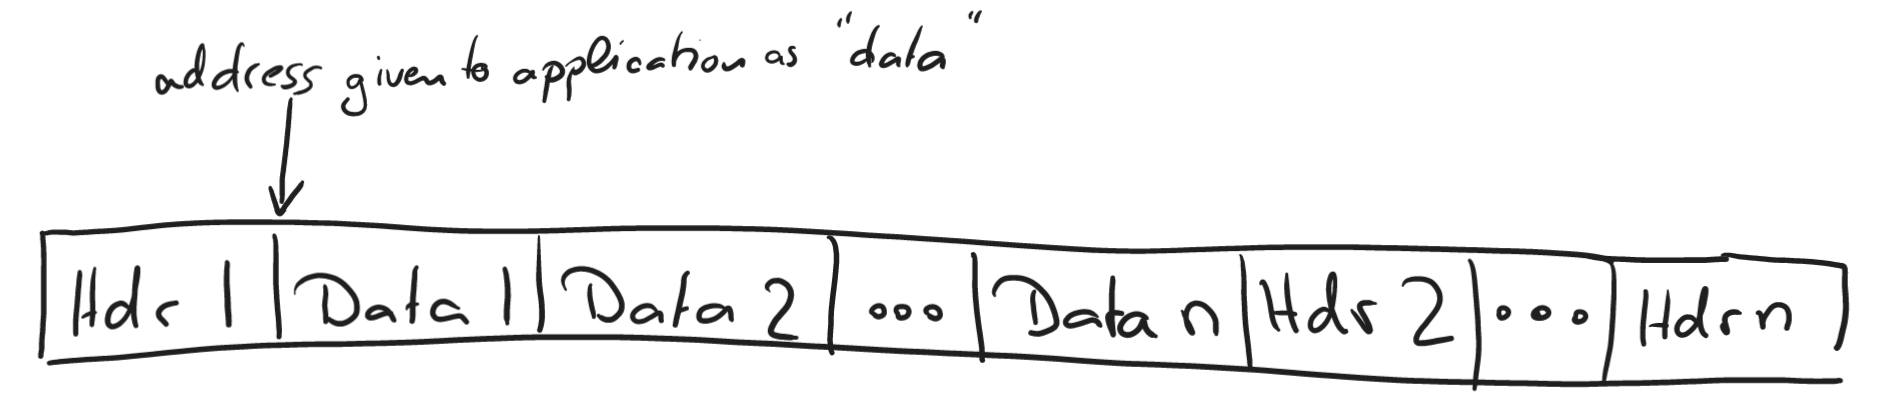 address given to application as "data"
Hdr 1 Data 1 Data 2 ... Data n Hdr 2 ... Hdr n